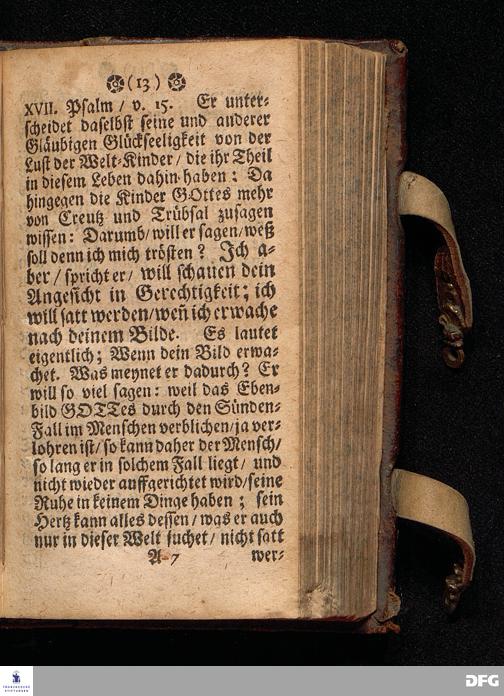 (13)
XVII. Psalm / v. 15. Er unter-
scheidet daselbst seine und anderer
Gläubigen Glückseeligkeit von der
Lust der Welt-Kinder / die ihr Theil
in diesem Leben dahin haben: Da
hingegen die Kinder GOttes mehr
von Creutz und Trübsal zusagen
wissen: Darumb / will er sagen / weß
soll denn ich mich trösten? Ich a-
ber / spricht er / will schauen dein
Angesicht in Gerechtigkeit; ich
will satt werden / weñ ich erwache
nach deinem Bilde. Es lautet
eigentlich; Wenn dein Bild erwa-
chet. Was meynet er dadurch? Er
will so viel sagen: weil das Eben-
bild GOTTes durch den Sünden-
Fall im Menschen verblichen / ja ver-
lohren ist / so kann daher der Mensch /
so lang er in solchem Fall liegt / und
nicht wieder auffgerichtet wird / seine
Ruhe in keinem Dinge haben; sein
Hertz kann alles dessen / was er auch
nur in dieser Welt suchet / nicht satt
A 7 wer-
FRANCKESCHE
STIFTUNGEN
DFG